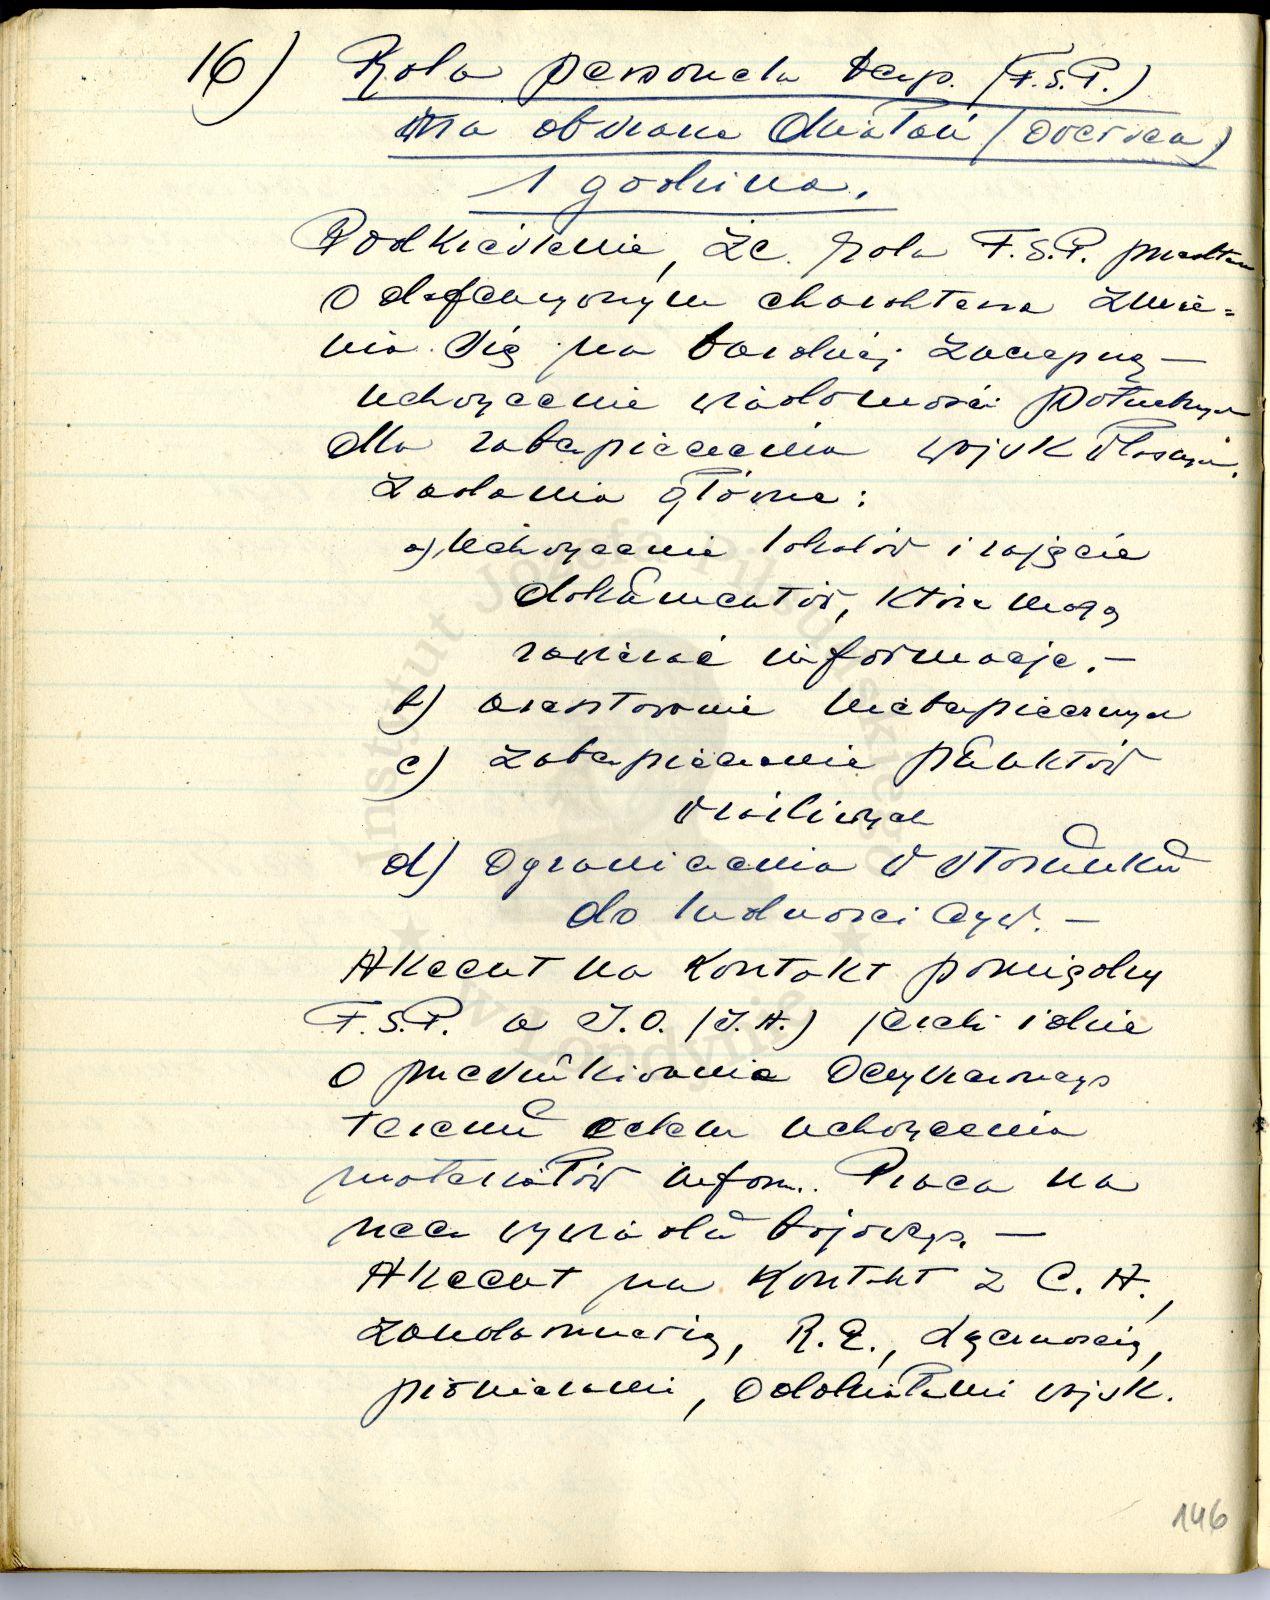 16) Rola personelu bezp. (F.S.P.)
na obszarze działań (
1 godzina.
Podkreślenie, że rola F.S.P. przedtem
o defenzywnym charakterze zmie-
nia się na bardziej zaczepną —
uchwycenie wiadomości potrzebnych
dla zabezpieczenia wojsk własnych.
Zadania główne:
a) Uchwycenie lokalów i zajęcie
dokumentów, które mogą
zawierać informacje. —
b) aresztowanie niebezpiecznych
c) zabezpieczenie punktów
wrażliwych
d) Ograniczenia w stosunku
do ludności cyw. —
Akcent na kontakt pomiędzy
F.S.P. a J.O. (J.H.) jeżeli idzie
o przeszukiwanie oczyszczonego
terenu celem uchwycenia
materiałów inform. Praca na
rzecz wywiadu bojowego. —
Akcent na kontakt z C.A.,
żandarmerią, R.E., łącznością,
pionierami, oddziałami wojsk.
146
Instytut Józefa Piłsudskiego
w Londynie